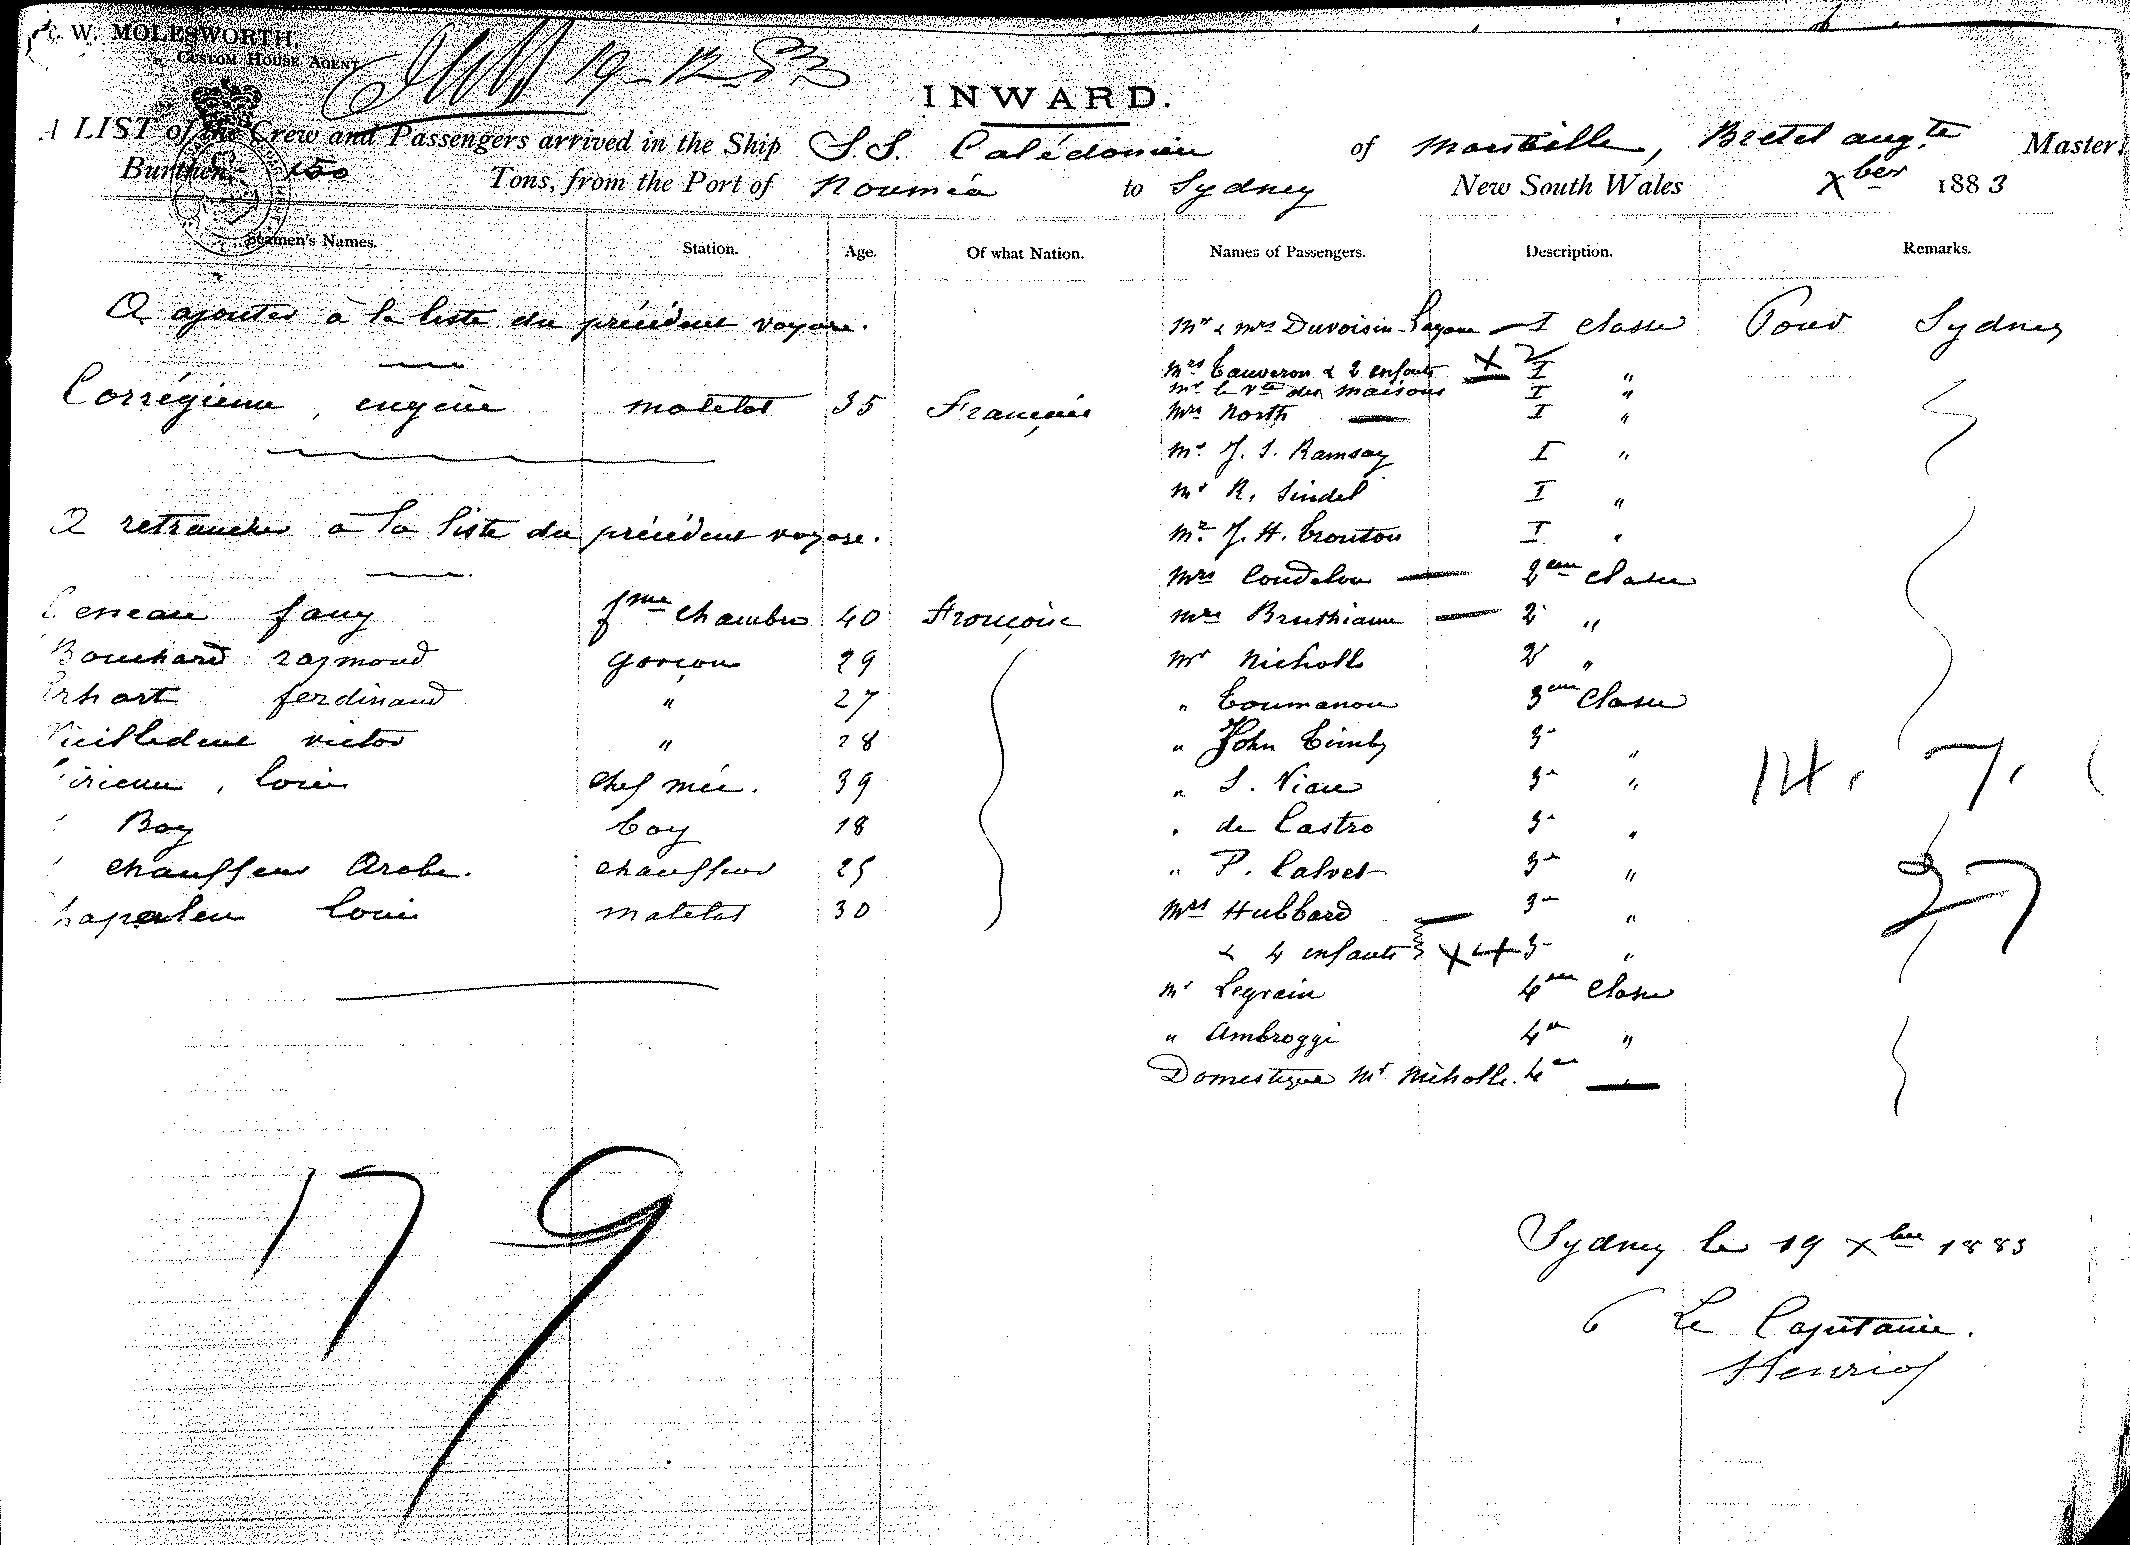 W. MOLESWORTH,
CUSTOM HOUSE AGENT
19-12-83
INWARD.
A LIST of the Crew and Passengers arrived in the Ship S.S. Calédonien of Marseille, Bretel Aug.te Master,
Burthen, 150 Tons, from the Port of Nouméa to Sydney New South Wales Xber 1883
Seamen's Names. Station. Age. Of what Nation. Names of Passengers. Description. Remarks.
A ajouter à la liste du précédent voyage. Mr & Mrs Duvoisin I Classe Pour Sydney
Mrs Cauveron & 2 enfants X 2 I "
Mr le Vte des Maisons I "
eugène matelot 35 Française Mrs North I "
Mr J. S. Ramsay I "
Mr R. Sindel I "
A retrancher à la liste du précédent voyage. Mr J. H. Crouton I "
Mrs Coudelou 2eme Classe
fany fme Chambre 40 Française Mrs 2 "
Bouchard raymond garçon 29 Mr Nicholls 2 "
ferdinand " 27 " Toumanou 3eme Classe
victor " 28 " John 3 "
louis Chef méc. 39 " S. Viau 3 "
Boy boy 18 " de Castro 3 "
chauffeur Arabe. chauffeur 25 " P. Calvet 3 "
louis matelot 30 Mrs Hubbard 3 "
& 4 enfants X 4 3 "
Mr Legrain 4eme Classe
" Ambroggi 4 "
Domestique Mr Nicholls. 4
14. 7. (
27
179
Sydney le 19 Xbre 1883
Le Capitaine.